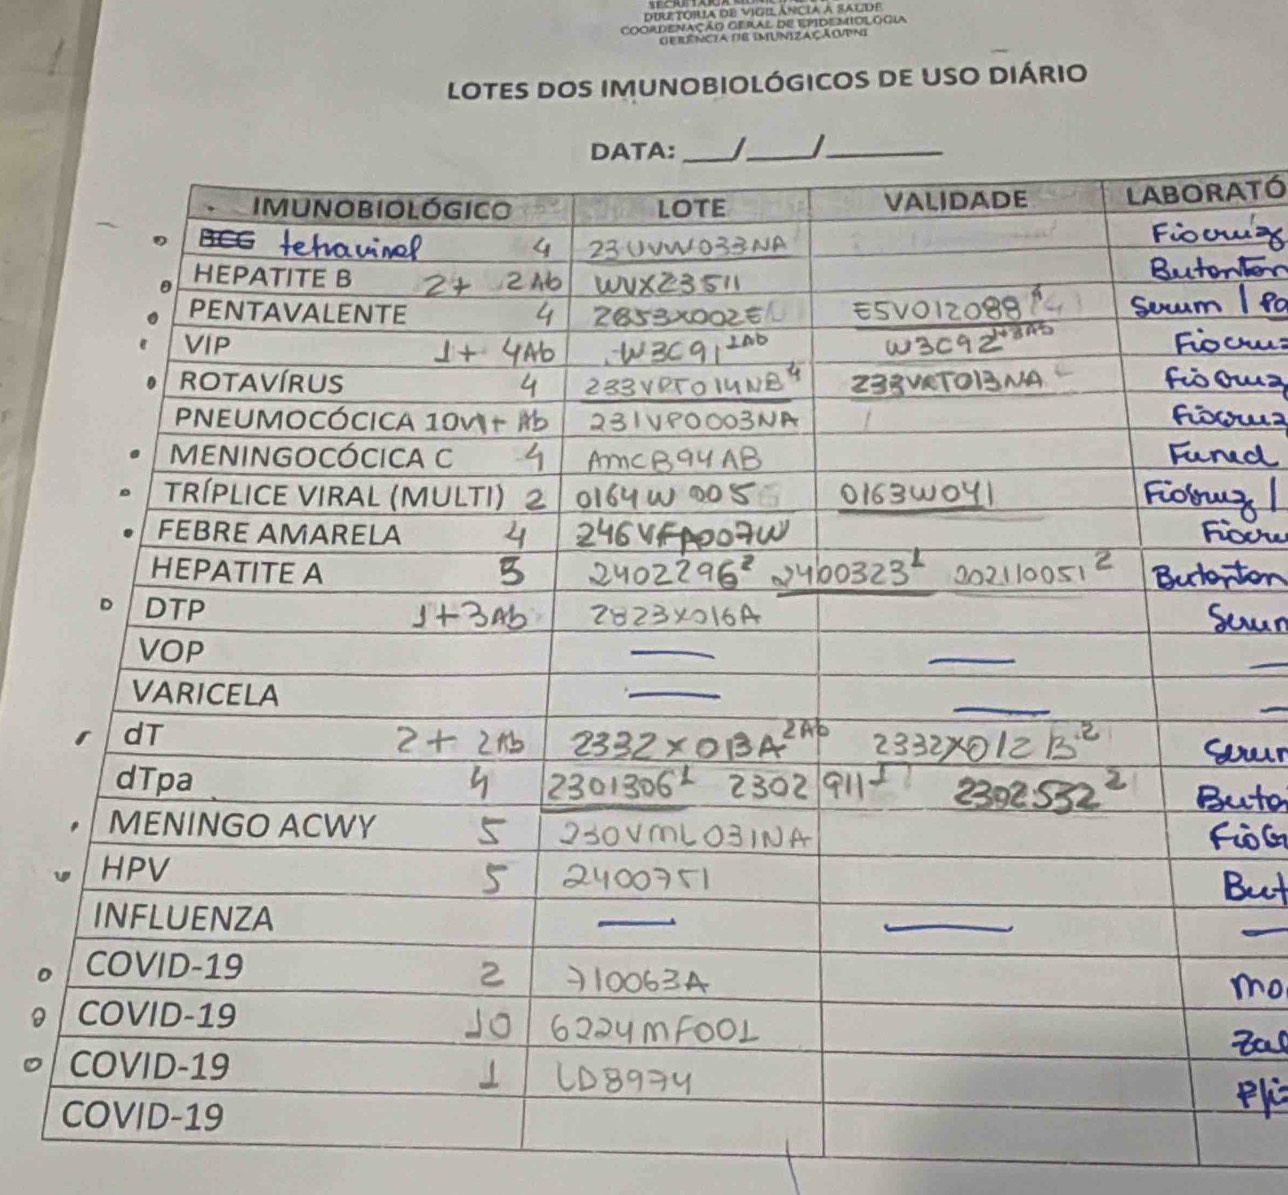 DIRETORIA DE VIGILÂNCIA À SAÚDE
COORDENAÇÃO GERAL DE EPIDEMIOLOGIA
GERÊNCIA DE IMUNIZAÇÃO/PNI
LOTES DOS IMUNOBIOLÓGICOS DE USO DIÁRIO
DATA: ___/___/_____
IMUNOBIOLÓGICO LOTE VALIDADE LABORATÓ
BCG tetraviral 4 23UVVW033NA Fiocruz
HEPATITE B 2+ 2Ab WVX23511 Butantan
PENTAVALENTE 4 2853X002E E5V012088 Serum
VIP 1+ 4Ab W3C91 1Ab W3C92 Fiocruz
ROTAVÍRUS 4 233VRT014NB 4 233VRT013NA Fiocruz
PNEUMOCÓCICA 10V 1+ Ab 231VP0003NA Fiocruz
MENINGOCÓCICA C 4 AMCB94AB Funed
TRÍPLICE VIRAL (MULTI) 2 0164W005 0163W041 Fiocruz
FEBRE AMARELA 4 246VFA007W Fiocru
HEPATITE A 5 2402296 2 2400323 1 202110051 2 Butantan
DTP 1+3Ab 2823X016A Serum
VOP
VARICELA
dT 2+ 2Ab 2332X013A 2Ab 2332X012B 2 Serum
dTpa 4 2301306 1 2302911 1 2302532 2 Buta
MENINGO ACWY 5 230VML031NA FioCr
HPV 5 2400751 But
INFLUENZA
COVID-19 2 710063A Mo
COVID-19 10 6224MF001 Zal
COVID-19 1 LD8974 Pfi
COVID-19